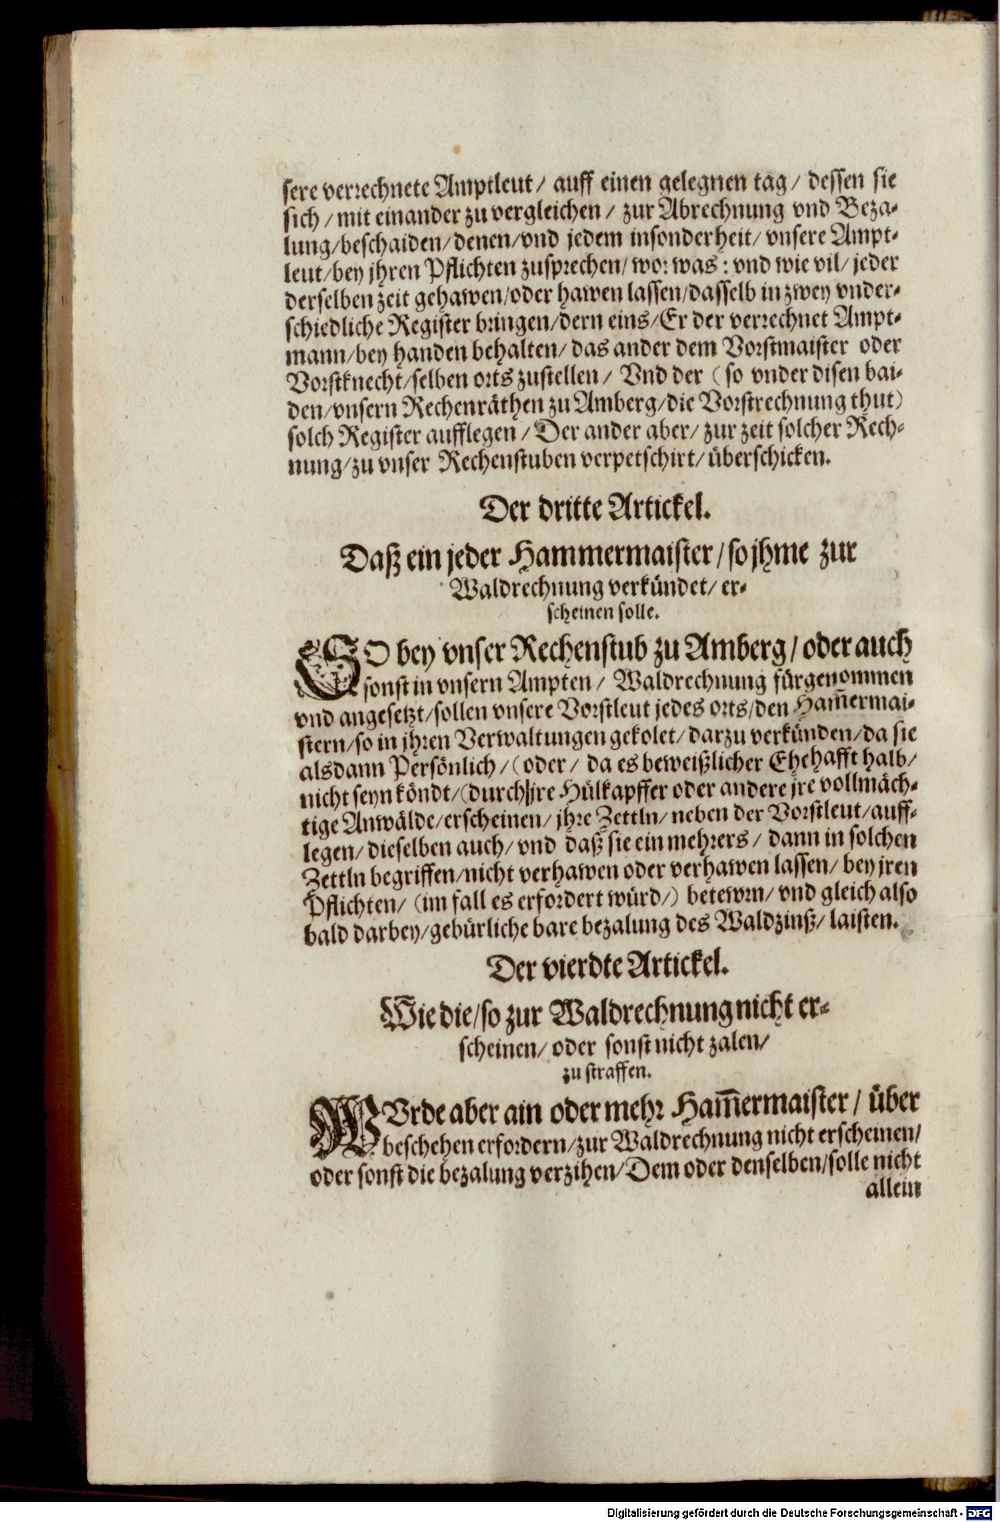 sere verrechnete Amptleut/ auff einen gelegnen tag/ dessen sie
sich/ mit einander zu vergleichen/ zur Abrechnung vnd Beza-
lung/beschaiden/denen/vnd jedem insonderheit/ vnsere Ampt-
leut/bey jhren Pflichten zusprechen/ wo: was: vnd wie vil/ jeder
derselben zeit gehawen/oder hawen lassen/dasselb in zwey vnder-
schiedliche Register bringen/dern eins/Er der verrechnet Ampt-
mann/bey handen behalten/ das ander dem Vorstmaister oder
Vorstknecht/selben orts zustellen/ Vnd der (so vnder disen bai-
den/vnsern Rechenräthen zu Amberg/die Vorstrechnung thut)
solch Register aufflegen/Der ander aber/ zur zeit solcher Rech-
nung/zu vnser Rechenstuben verpetschirt/überschicken.
Der dritte Artickel.
Daß ein jeder Hammermaister/so jhme zur
Waldrechnung verkündet/ er-
scheinen solle.
SO bey vnser Rechenstub zu Amberg/oder auch
sonst in vnsern Ampten/ Waldrechnung fürgenommen
vnd angesetzt/sollen vnsere Vorstleut jedes orts/den Ham̄ermai-
stern/so in jhren Verwaltungen gekolet/darzu verkünden/da sie
alsdann Persönlich/(oder/ da es beweißlicher Ehehafft halb/
nicht seyn köndt/(durch jre Hülkapffer oder andere jre vollmäch-
tige Anwälde/erscheinen/jhre Zettln/ neben der Vorstleut/auff-
legen/dieselben auch/vnd daß sie ein mehrers/ dann in solchen
Zettln begriffen/nicht verhawen oder verhawen lassen/ bey jren
Pflichten/ (im fall es erfordert würd/) betewrn/ vnd gleich also
bald darbey/gebürliche bare bezalung des Waldzinß/ laisten.
Der vierdte Artickel.
Wie die/so zur Waldrechnung nicht er-
scheinen/ oder sonst nicht zalen/
zu straffen.
WVrde aber ain oder mehr Ham̄ermaister/ über
beschehen erfordern/zur Waldrechnung nicht erscheinen/
oder sonst die bezalung verzihen/Dem oder denselben/solle nicht
allein
Digitalisierung gefördert durch die Deutsche Forschungsgemeinschaft - DFG